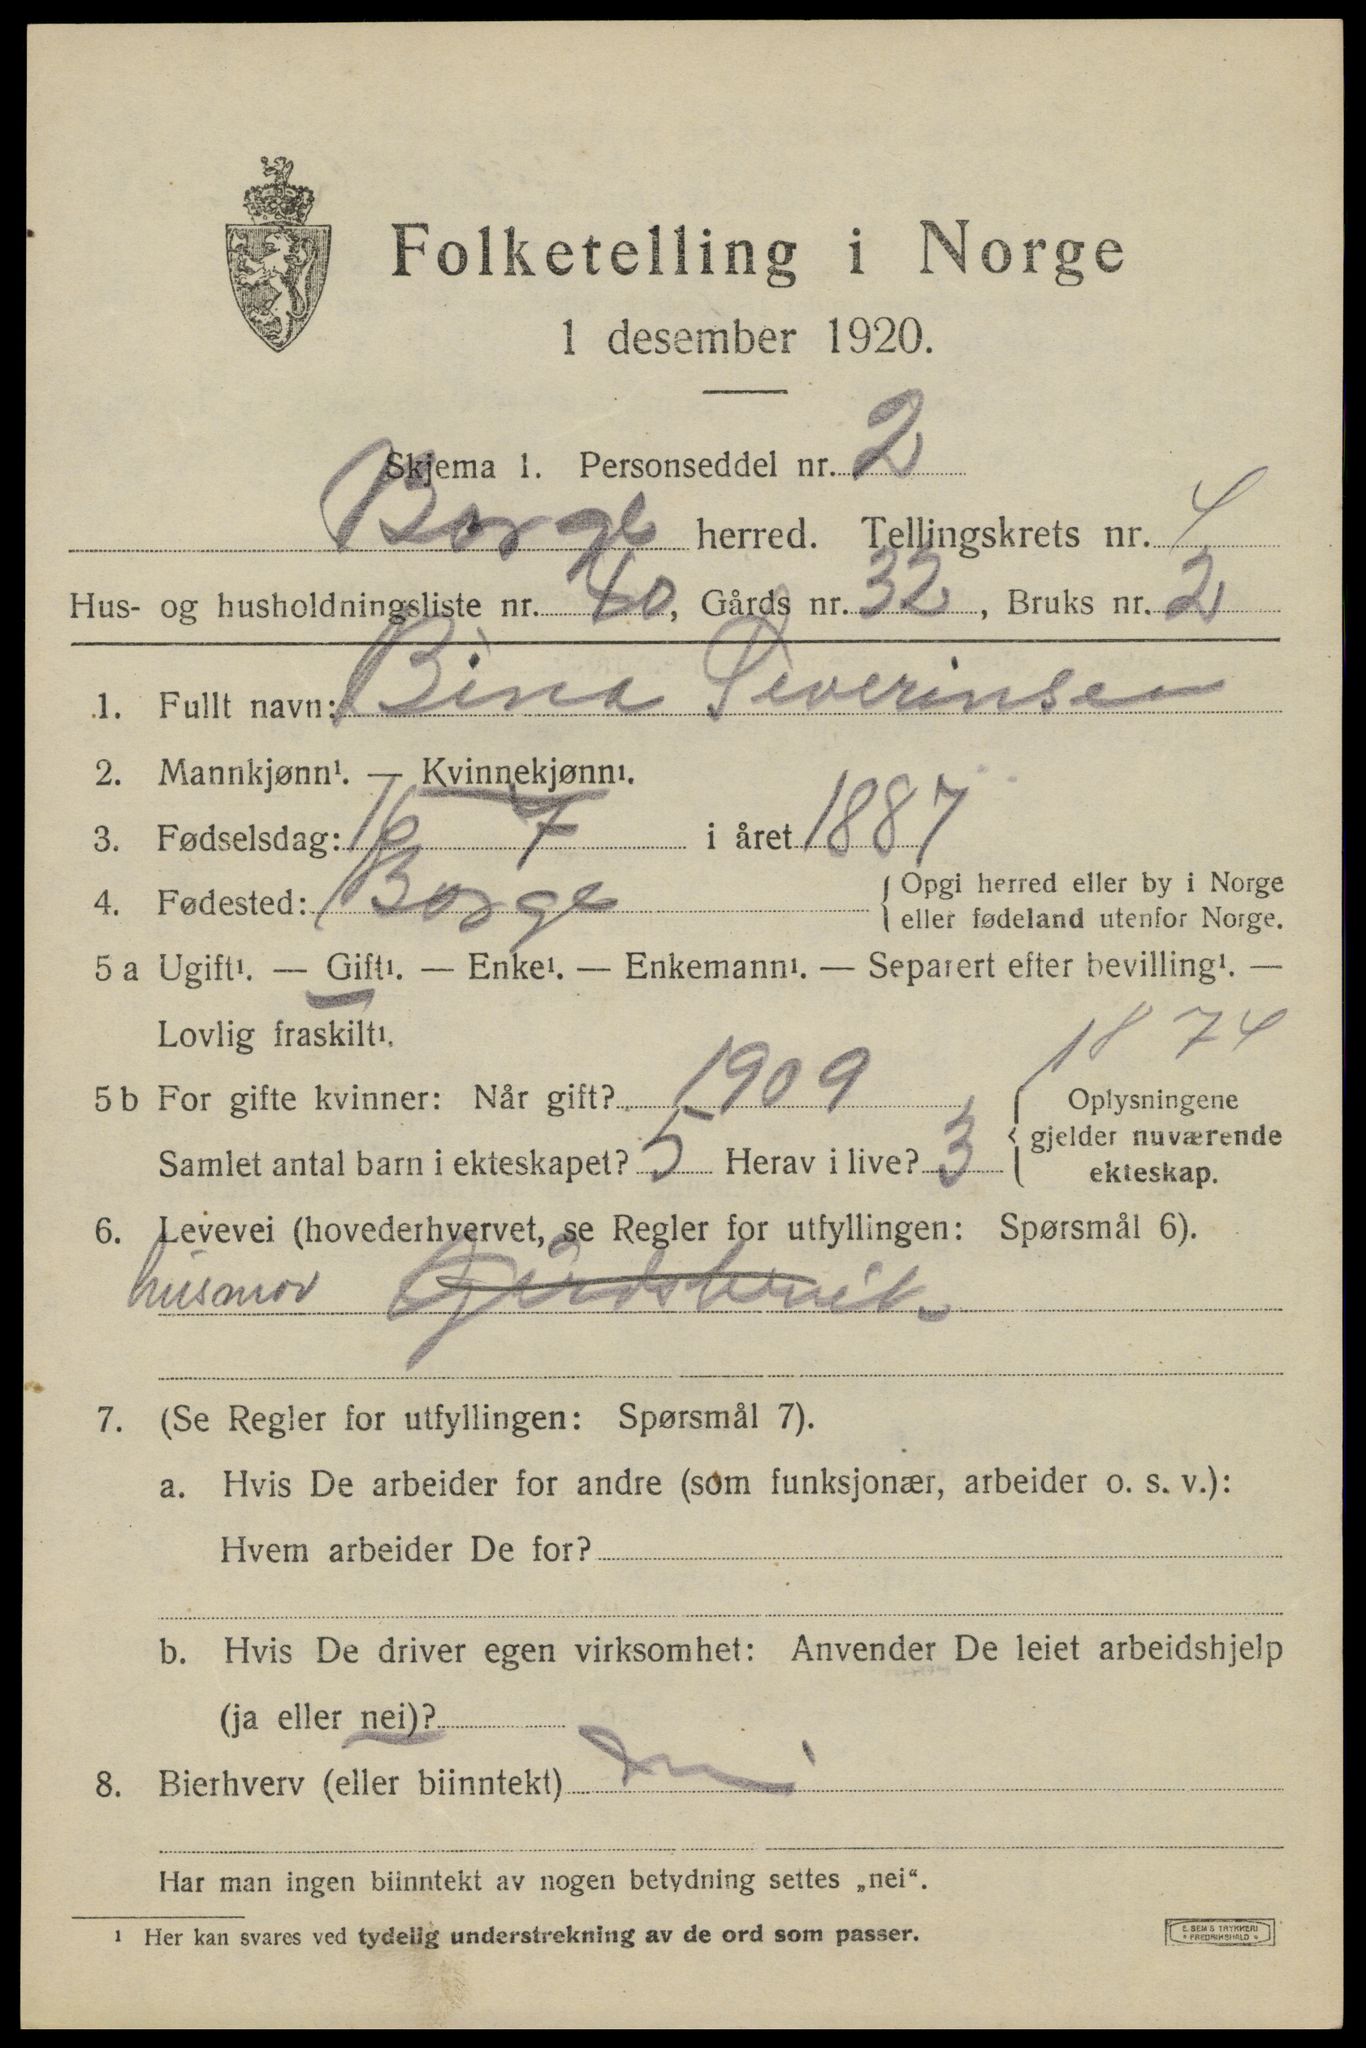 Folketelling i Norge
1 desember 1920.
Skjema 1. Personseddel nr. 2
Borge herred. Tellingskrets nr. 4
Hus- og husholdningsliste nr. 40, Gårds nr. 32, Bruks nr. 2
1. Fullt navn: Bina Severinsen
2. Mannkjønn¹. — Kvinnekjønn¹.
3. Fødselsdag: 16 7 i året 1887
4. Fødested: Borge { Opgi herred eller by i Norge
eller fødeland utenfor Norge.
5 a Ugift¹. — Gift¹. — Enke¹. — Enkemann¹. — Separert efter bevilling¹. —
Lovlig fraskilt¹.
1874
5 b For gifte kvinner: Når gift? 1909
Samlet antal barn i ekteskapet? 5 Herav i live? 3
{ Oplysningene
gjelder nuværende
ekteskap.
6. Levevei (hovederhvervet, se Regler for utfyllingen: Spørsmål 6).
husmor
7. (Se Regler for utfyllingen: Spørsmål 7).
a. Hvis De arbeider for andre (som funksjonær, arbeider o. s. v.):
Hvem arbeider De for?
b. Hvis De driver egen virksomhet: Anvender De leiet arbeidshjelp
(ja eller nei)?
8. Bierhverv (eller biinntekt) nei
Har man ingen biinntekt av nogen betydning settes „nei“.
¹ Her kan svares ved tydelig understrekning av de ord som passer.
E. SEM'S TRYKKERI
* FREDRIKSHALD *